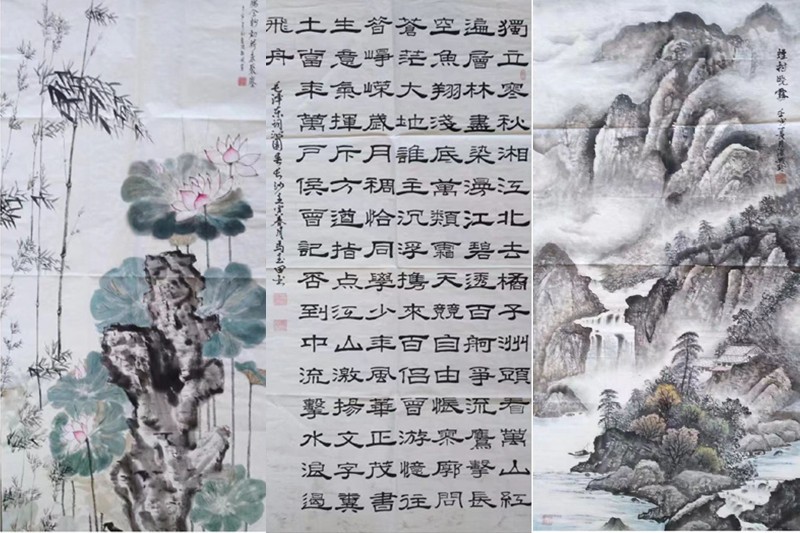 獨立寒秋湘江北去橘子洲頭看萬山紅
遍層林盡染漫江碧透百舸爭流鷹擊長
空魚翔淺底萬類霜天競自由悵寥廓問
蒼茫大地誰主沉浮攜來百侶曾游憶往
昔崢嶸歲月稠恰同學少年風華正茂書
生意氣揮斥方遒指点江山激揚文字糞
土當年萬戶侯曾記否到中流擊水浪遏
飛舟
毛泽东词沁園春长沙壬寅月馬玉田书